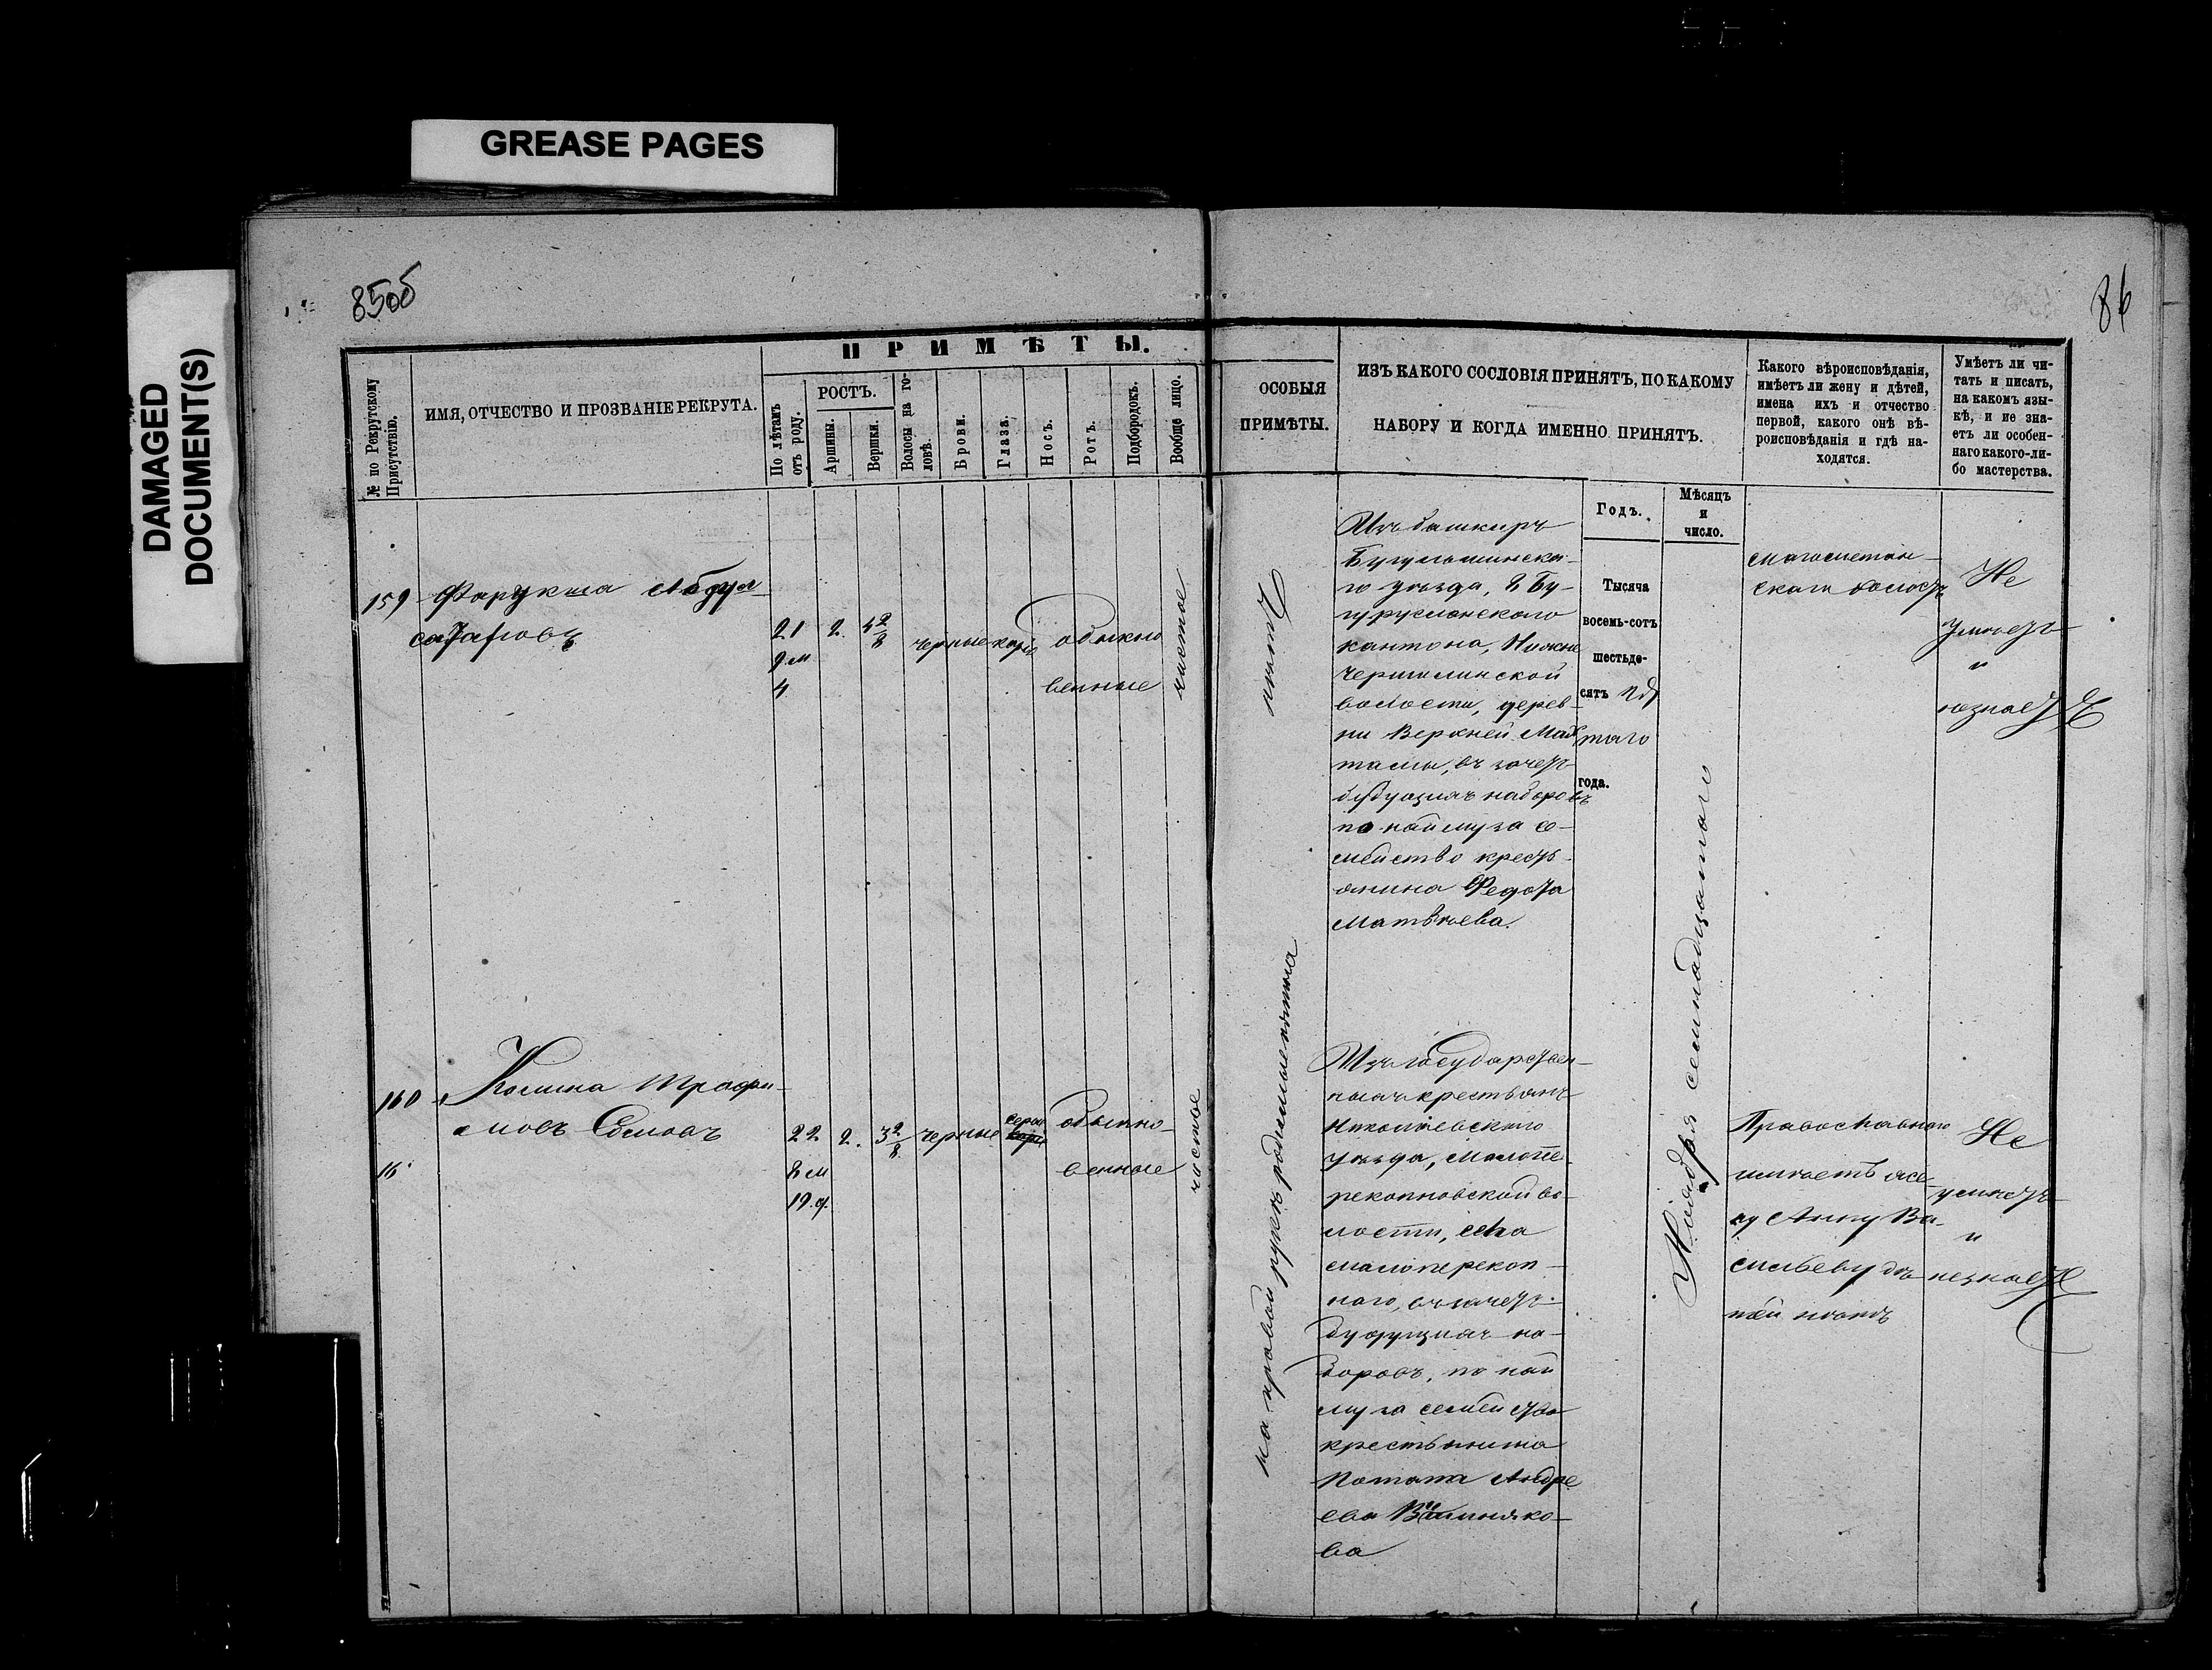 GREASE PAGES
DAMAGED
DOCUMENT(S)
85об
86
ПРИМѢТЫ.
№ по Рекрутскому
Присутствію.
ИМЯ, ОТЧЕСТВО И ПРОЗВАНІЕ РЕКРУТА.
По лѣтамъ
отъ роду.
РОСТЪ.
Аршины.
Вершки.
Волосы на го-
ловѣ.
Брови.
Глаза.
Носъ.
Ротъ.
Подбородокъ.
Вообще лицо.
ОСОБЫЯ
ПРИМѢТЫ.
ИЗЪ КАКОГО СОСЛОВІЯ ПРИНЯТЪ, ПО КАКОМУ
НАБОРУ И КОГДА ИМЕННО ПРИНЯТЪ.
Годъ.
Мѣсяцъ
и
число.
Какого вѣроисповѣданія,
имѣетъ ли жену и дѣтей,
имена ихъ и отчество
первой, какого онѣ вѣ-
роисповѣданія и гдѣ на-
ходятся.
Умѣетъ ли чи-
тать и писать,
на какомъ язы-
кѣ, и не зна-
етъ ли особен-
наго какого-ли-
бо мастерства.
159
Фарукша Абдул
21 2. 4 2/8 черные каріе обыкно
9 м
4
венные
чистое
нѣтъ
Изъ башкиръ
Бугульминска-
го уѣзда, 2 Бу-
гурусланского
кантона, Нижне
Чершилинской
волости, дерев-
ни Верхней Мак
тамы, въ зачетъ
будущихъ наборовъ
по найму за се-
мейство кресть-
янина Федота
Матвѣева.
Тысяча
восемь-сотъ
шестьде-
сятъ пя
таго
года.
Ноября семнадцатаго
магометан-
скаго холостъ
Не
умѣетъ
и
незнаетъ
160
Косьма Трофи-
мовъ Сомовъ
16
22 2. 3 2/8 черные серые обыкно-
8 м
19.д.
венные
чистое
на правой рукѣ родимые пятна
Изъ государствен-
ныхъ крестьянъ
Николаевского
уѣзда, Малопе-
рекопновской во-
лости, села
малоперекоп-
наго, въ зачетъ
будущихъ на-
боровъ, по най
му за семейство
крестьянина
Потапа Андре
ева Вишняко-
ва
Православнаго
имѣетъ же-
ну Анну Ва-
сильеву дѣ-
тей нѣтъ
Не
умѣетъ
и
незнаетъ